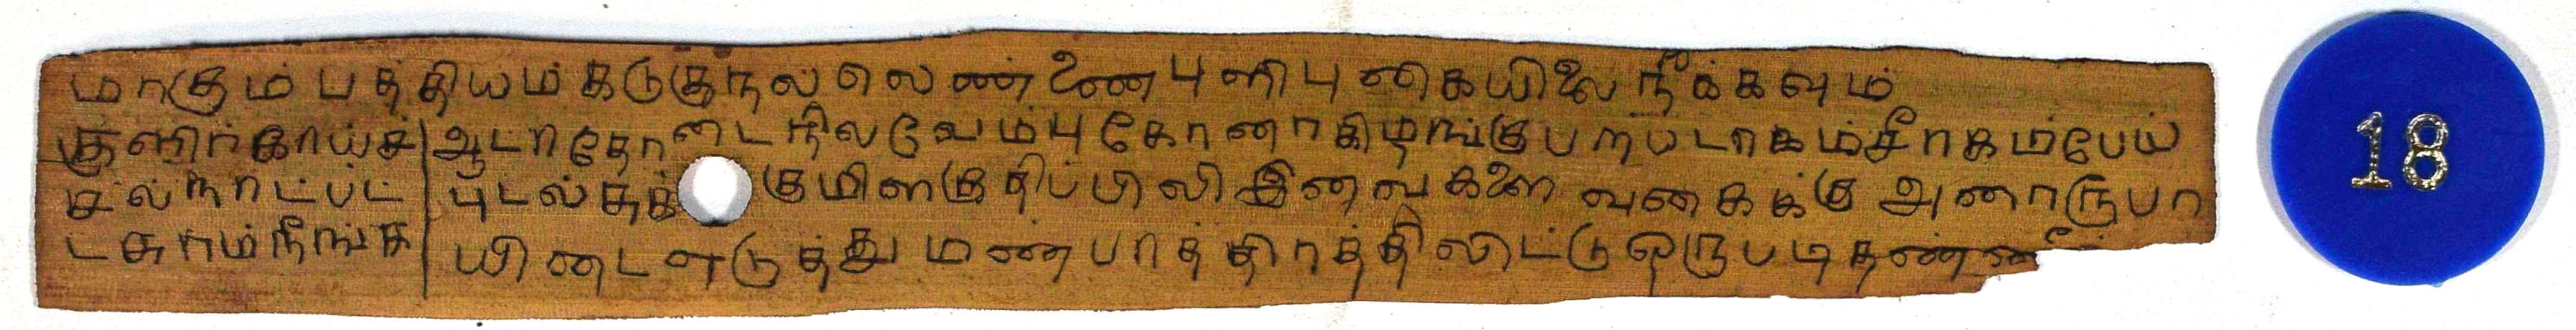 மாகும் பத்தியம் கடுகு நல லெண்ணை புளி புகையிலை நீக்கவும்
குளிர் காய்ச் | ஆடாதோடை நிலவேம்பு கோனாகிழங்கு பற்படாகம் சீரகம் பேய்
சல் நாட்பட் | புடல் சுக்கு மிளகு திப்பிலி இவைகளை வகைக்கு அரைரூபா
ட சுரம் நீங்க | யிடை எடுத்து மண் பாத்திரத்திலிட்டு ஒரு படி தண்ணீர்
18